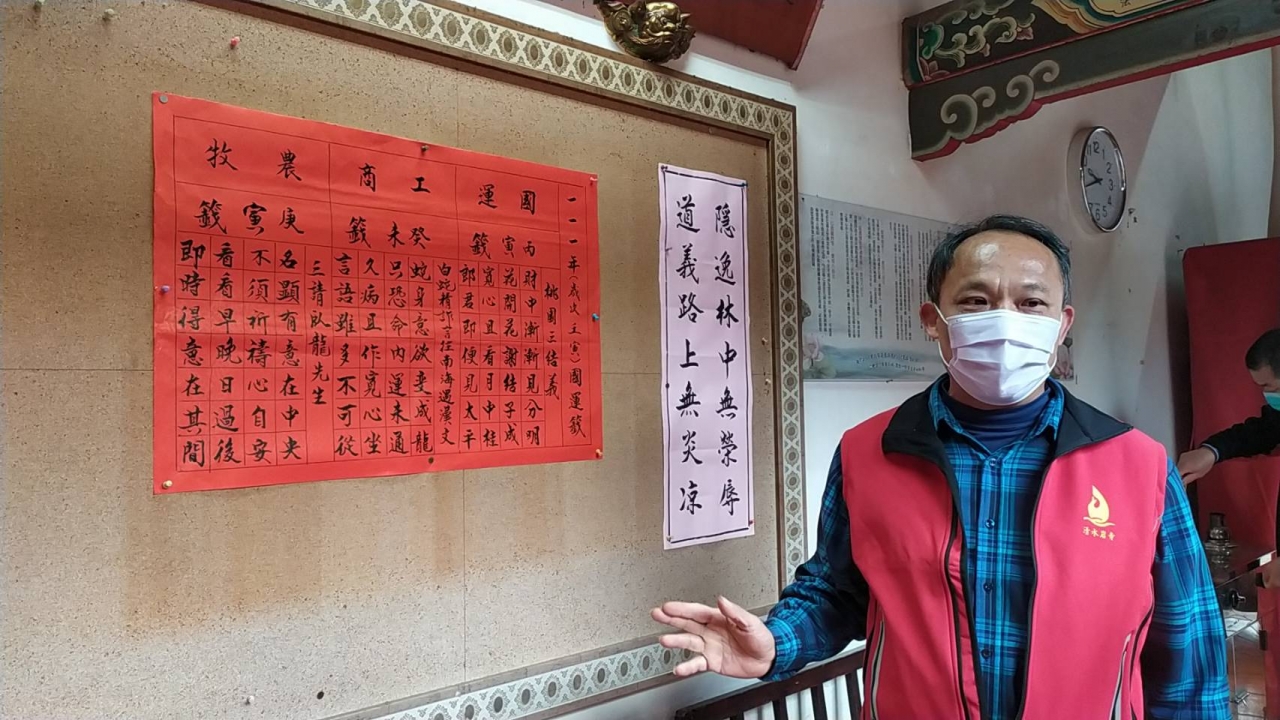 一一一年(歲次壬寅)國運籤
國運
丙寅籤
桃園三結義
財中漸漸見分明
花開花謝結子成
寬心且看月中桂
郎君即便見太平
工商
癸未籤
白蛇精詐言往南海遇漢文
蛇身意欲變成龍
只恐命內運未通
久病且作寬心坐
言語雖多不可從
農牧
庚寅籤
三請臥龍先生
名顯有意在中央
不須祈禱心自安
看看早晚日過後
即時得意在其間
隱逸林中無榮辱
道義路上無炎凉
清水岩寺